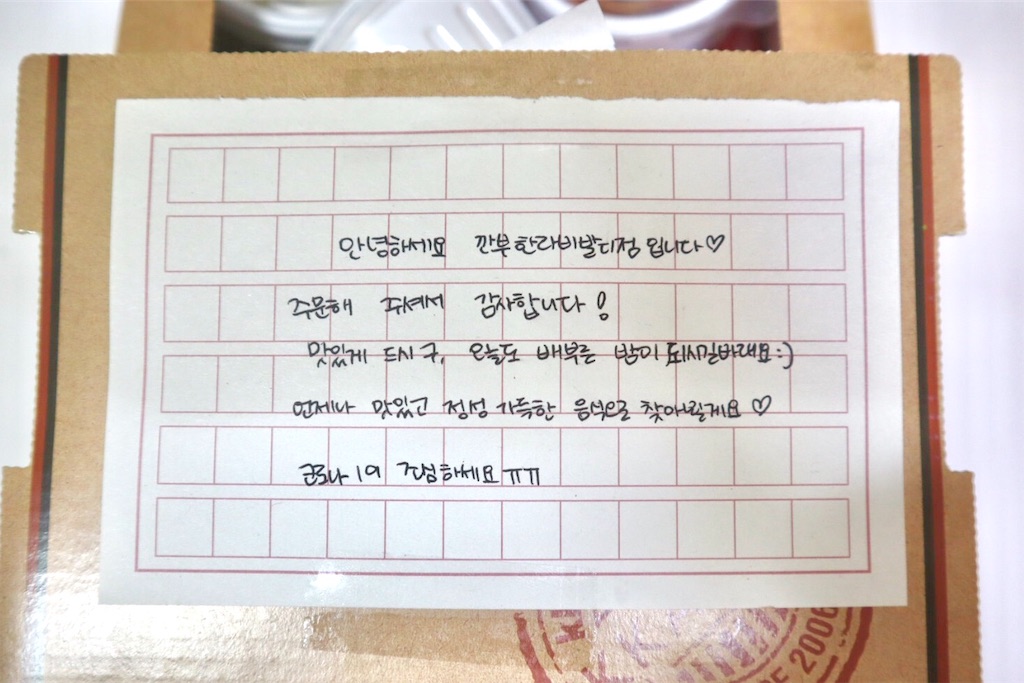 안녕하세요 깐부한라비발디점 입니다♡
주문해 주셔서 감사합니다!
맛있게 드시구, 오늘도 배부른 밤이 되시길바래요:)
언제나 맛있고 정성 가득한 음식으로 찾아뵐게요♡
코로나19 조심하세요ㅠㅠ
2006